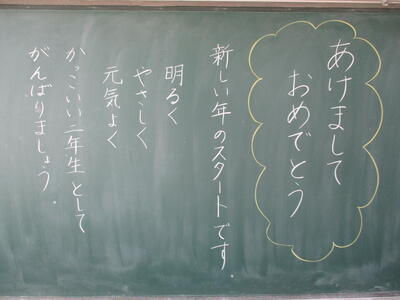 あけまして
おめでとう
新しい年のスタートです.
明るく
やさしく
元気よく
かっこいい二年生として
がんばりましょう.